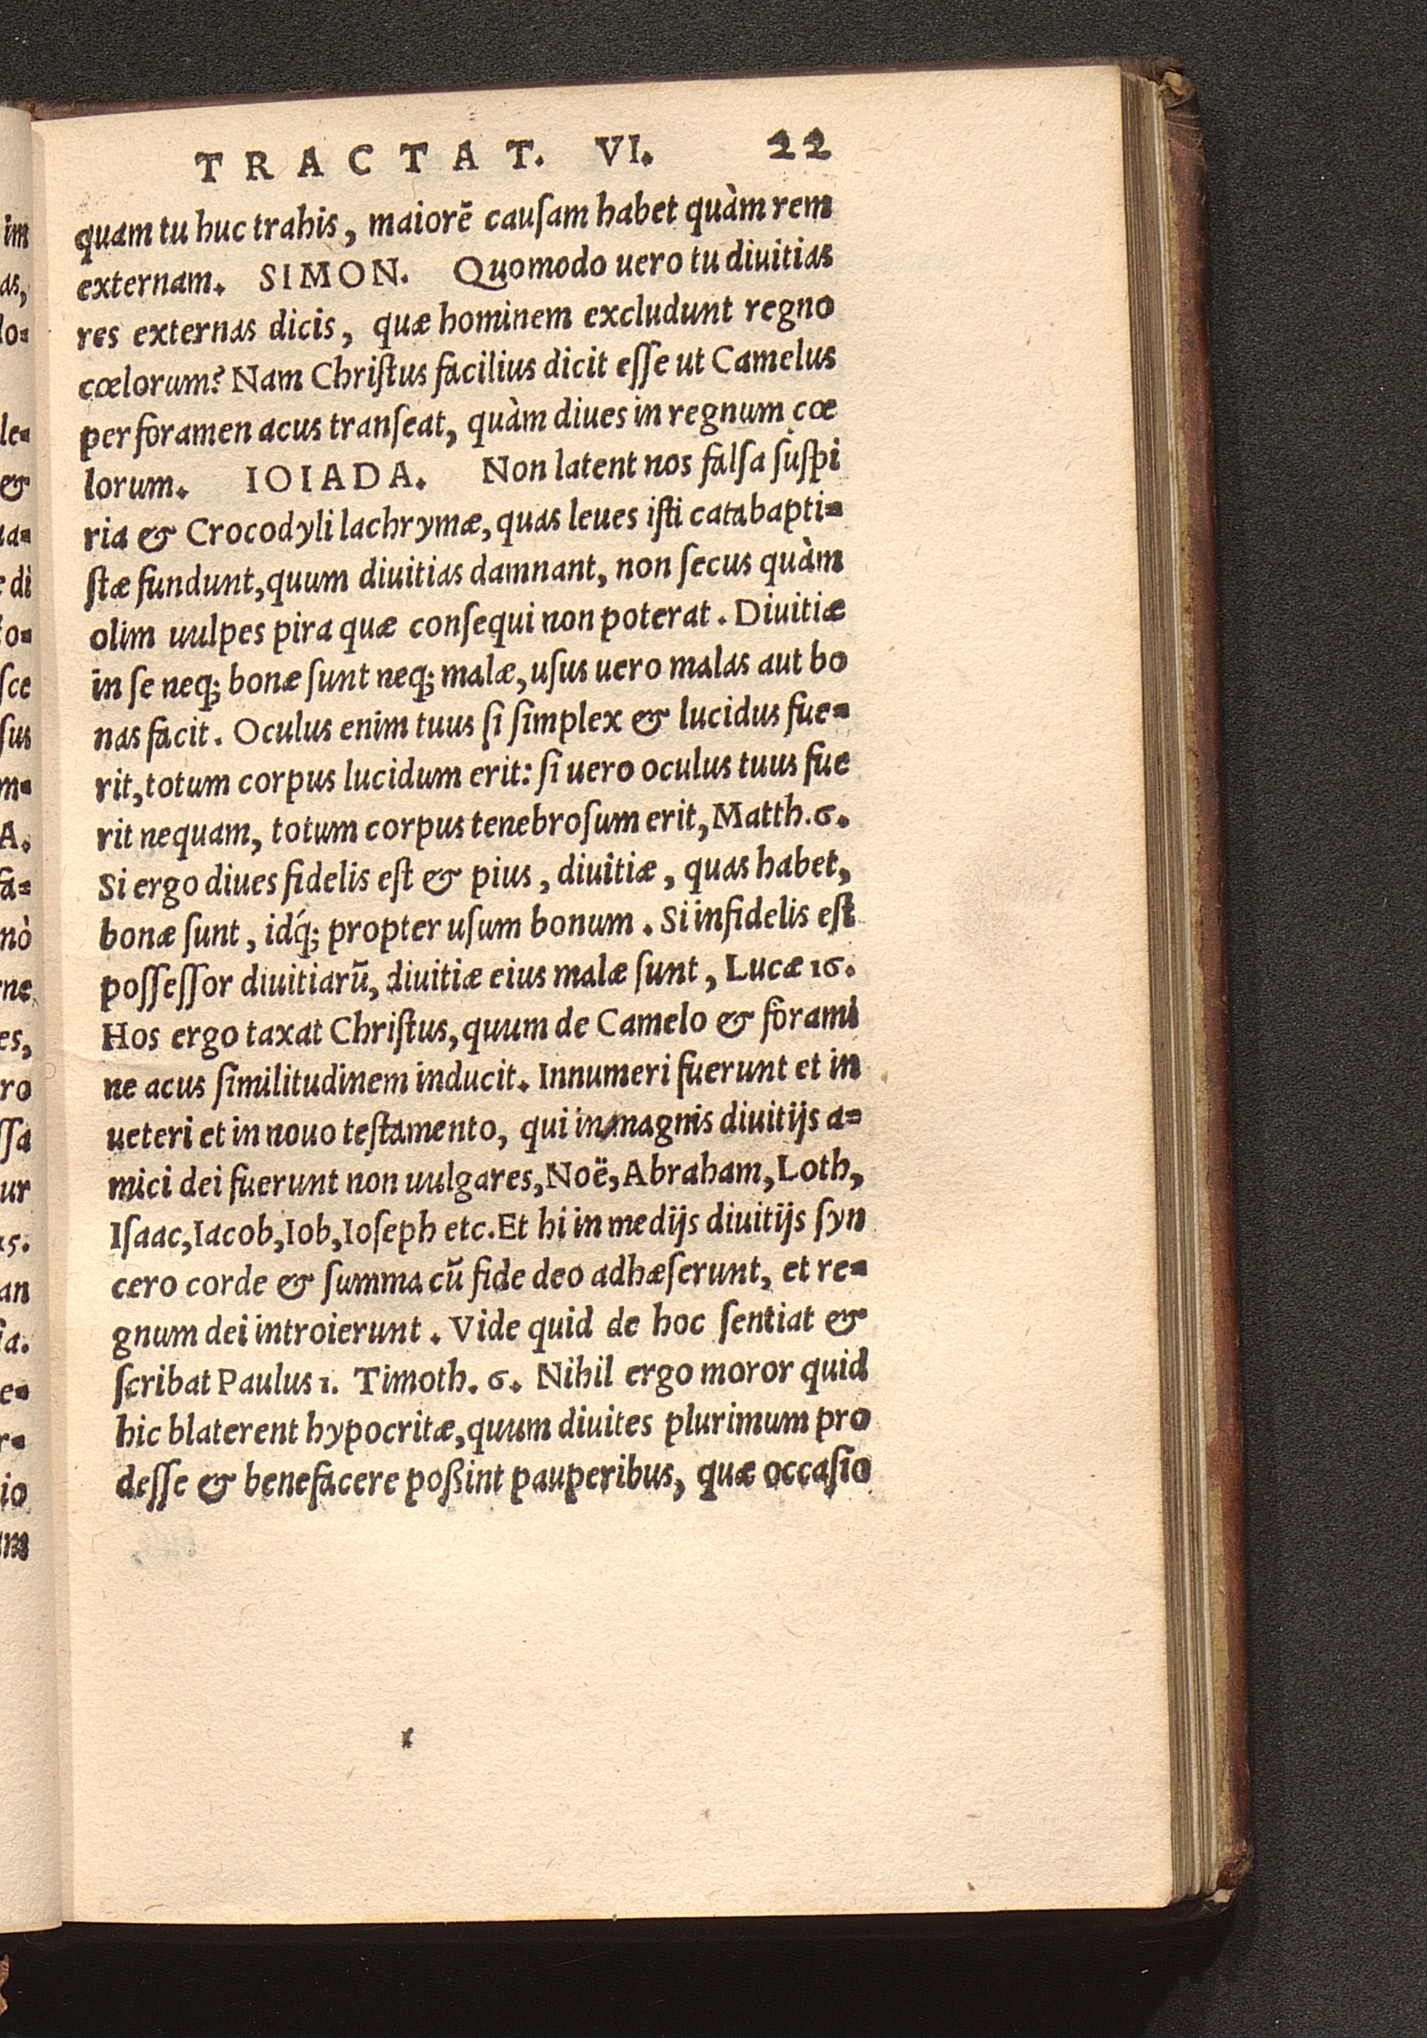 TRACTAT. VI. 22
quam tu huc trahis, maiorē cauſam habet quàm rem
externam. SIMON. Quomodo uero tu diuitias
res externas dicis, quæ hominem excludunt regno
cœlorum? Nam Chriſtus facilius dicit eſſe ut Camelus
per foramen acus tranſeat, quàm diues in regnum cœ
lorum. IOIADA. Non latent nos falſa ſuſpi
ria & Crocodyli lachrymæ, quas leues iſti catabapti-
ſtæ fundunt, quum diuitias damnant, non ſecus quàm
olim uulpes pira quæ conſequi non poterat. Diuitiæ
in ſe neq; bonæ ſunt neq; malæ, uſus uero malas aut bo
nas facit. Oculus enim tuus ſi ſimplex & lucidus fue-
rit, totum corpus lucidum erit: ſi uero oculus tuus fue
rit nequam, totum corpus tenebroſum erit, Matth. 6.
Si ergo diues fidelis eſt & pius, diuitiæ, quas habet,
bonæ ſunt, idq́; propter uſum bonum. Si infidelis eſt
poſſeſſor diuitiarū, diuitiæ eius malæ ſunt, Lucæ 16.
Hos ergo taxat Chriſtus, quum de Camelo & forami
ne acus ſimilitudinem inducit. Innumeri fuerunt et in
ueteri et in nouo teſtamento, qui in magnis diuitijs a-
mici dei fuerunt non uulgares, Noë, Abraham, Loth,
Iſaac, Iacob, Iob, Ioſeph etc. Et hi in medijs diuitijs ſyn
cero corde & ſumma cū fide deo adhæſerunt, et re-
gnum dei introierunt. Vide quid de hoc ſentiat &
ſcribat Paulus 1. Timoth. 6. Nihil ergo moror quid
hic blaterent hypocritæ, quum diuites plurimum pro
deſſe & benefacere poßint pauperibus, quæ occaſio